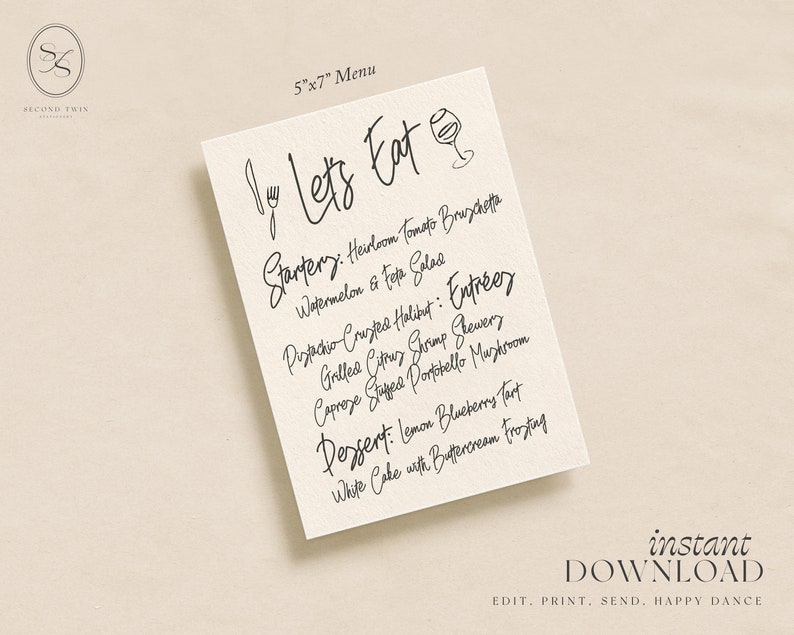 STS
SECOND TWIN
STATIONERY
5"x7" Menu
Let's Eat
Starters: Heirloom Tomato Bruschetta
Watermelon & Feta Salad
Pistachio-Crusted Halibut : Entrées
Grilled Citrus Shrimp Skewers
Caprese Stuffed Portobello Mushroom
Dessert: Lemon Blueberry Tart
White Cake with Buttercream Frosting
instant
DOWNLOAD
EDIT, PRINT, SEND, HAPPY DANCE